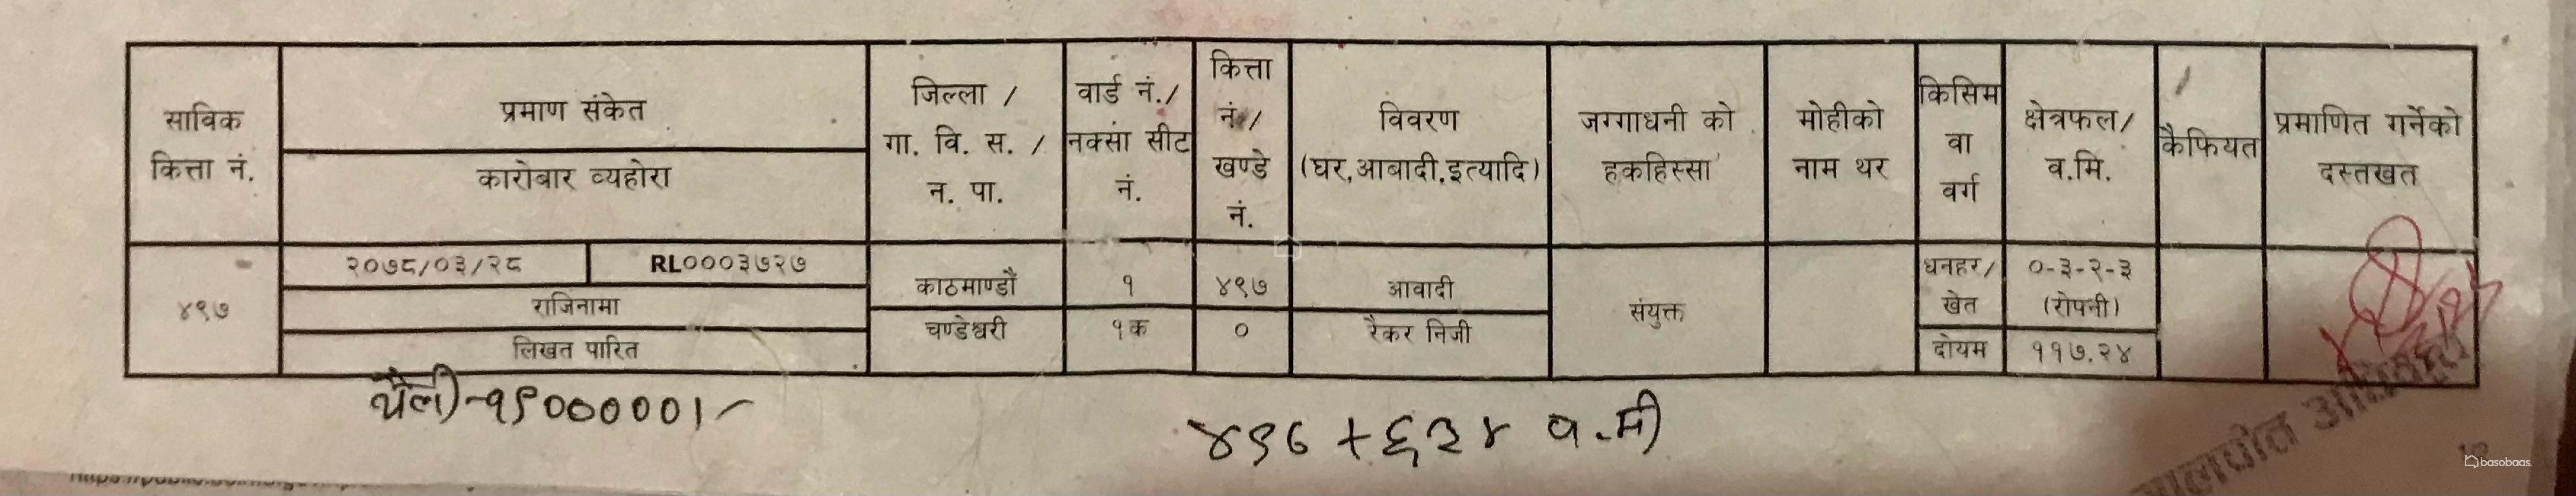 साविक
कित्ता नं.
प्रमाण संकेत
कारोबार व्यहोरा
जिल्ला /
गा. वि. स. /
न. पा.
वार्ड नं./
नक्सा सीट
नं.
कित्ता
नं./
खण्डे
नं.
विवरण
(घर,आबादी,इत्यादि)
जग्गाधनी को
हकहिस्सा
मोहीको
नाम थर
किसिम
वा
वर्ग
क्षेत्रफल/
व.मि.
कैफियत
प्रमाणित गर्नेको
दस्तखत
४९७
२०७८/०३/२८
RL०००३७२७
राजिनामा
लिखत पारित
काठमाण्डौं
चण्डेश्वरी
१
१क
४९७
०
आवादी
रैकर निजी
संयुक्त
धनहर/
खेत
दोयम
०-३-२-३
(रोपनी)
११७.२४
थैली-१९०००००।-
व.मी
मालपोत
basobaas